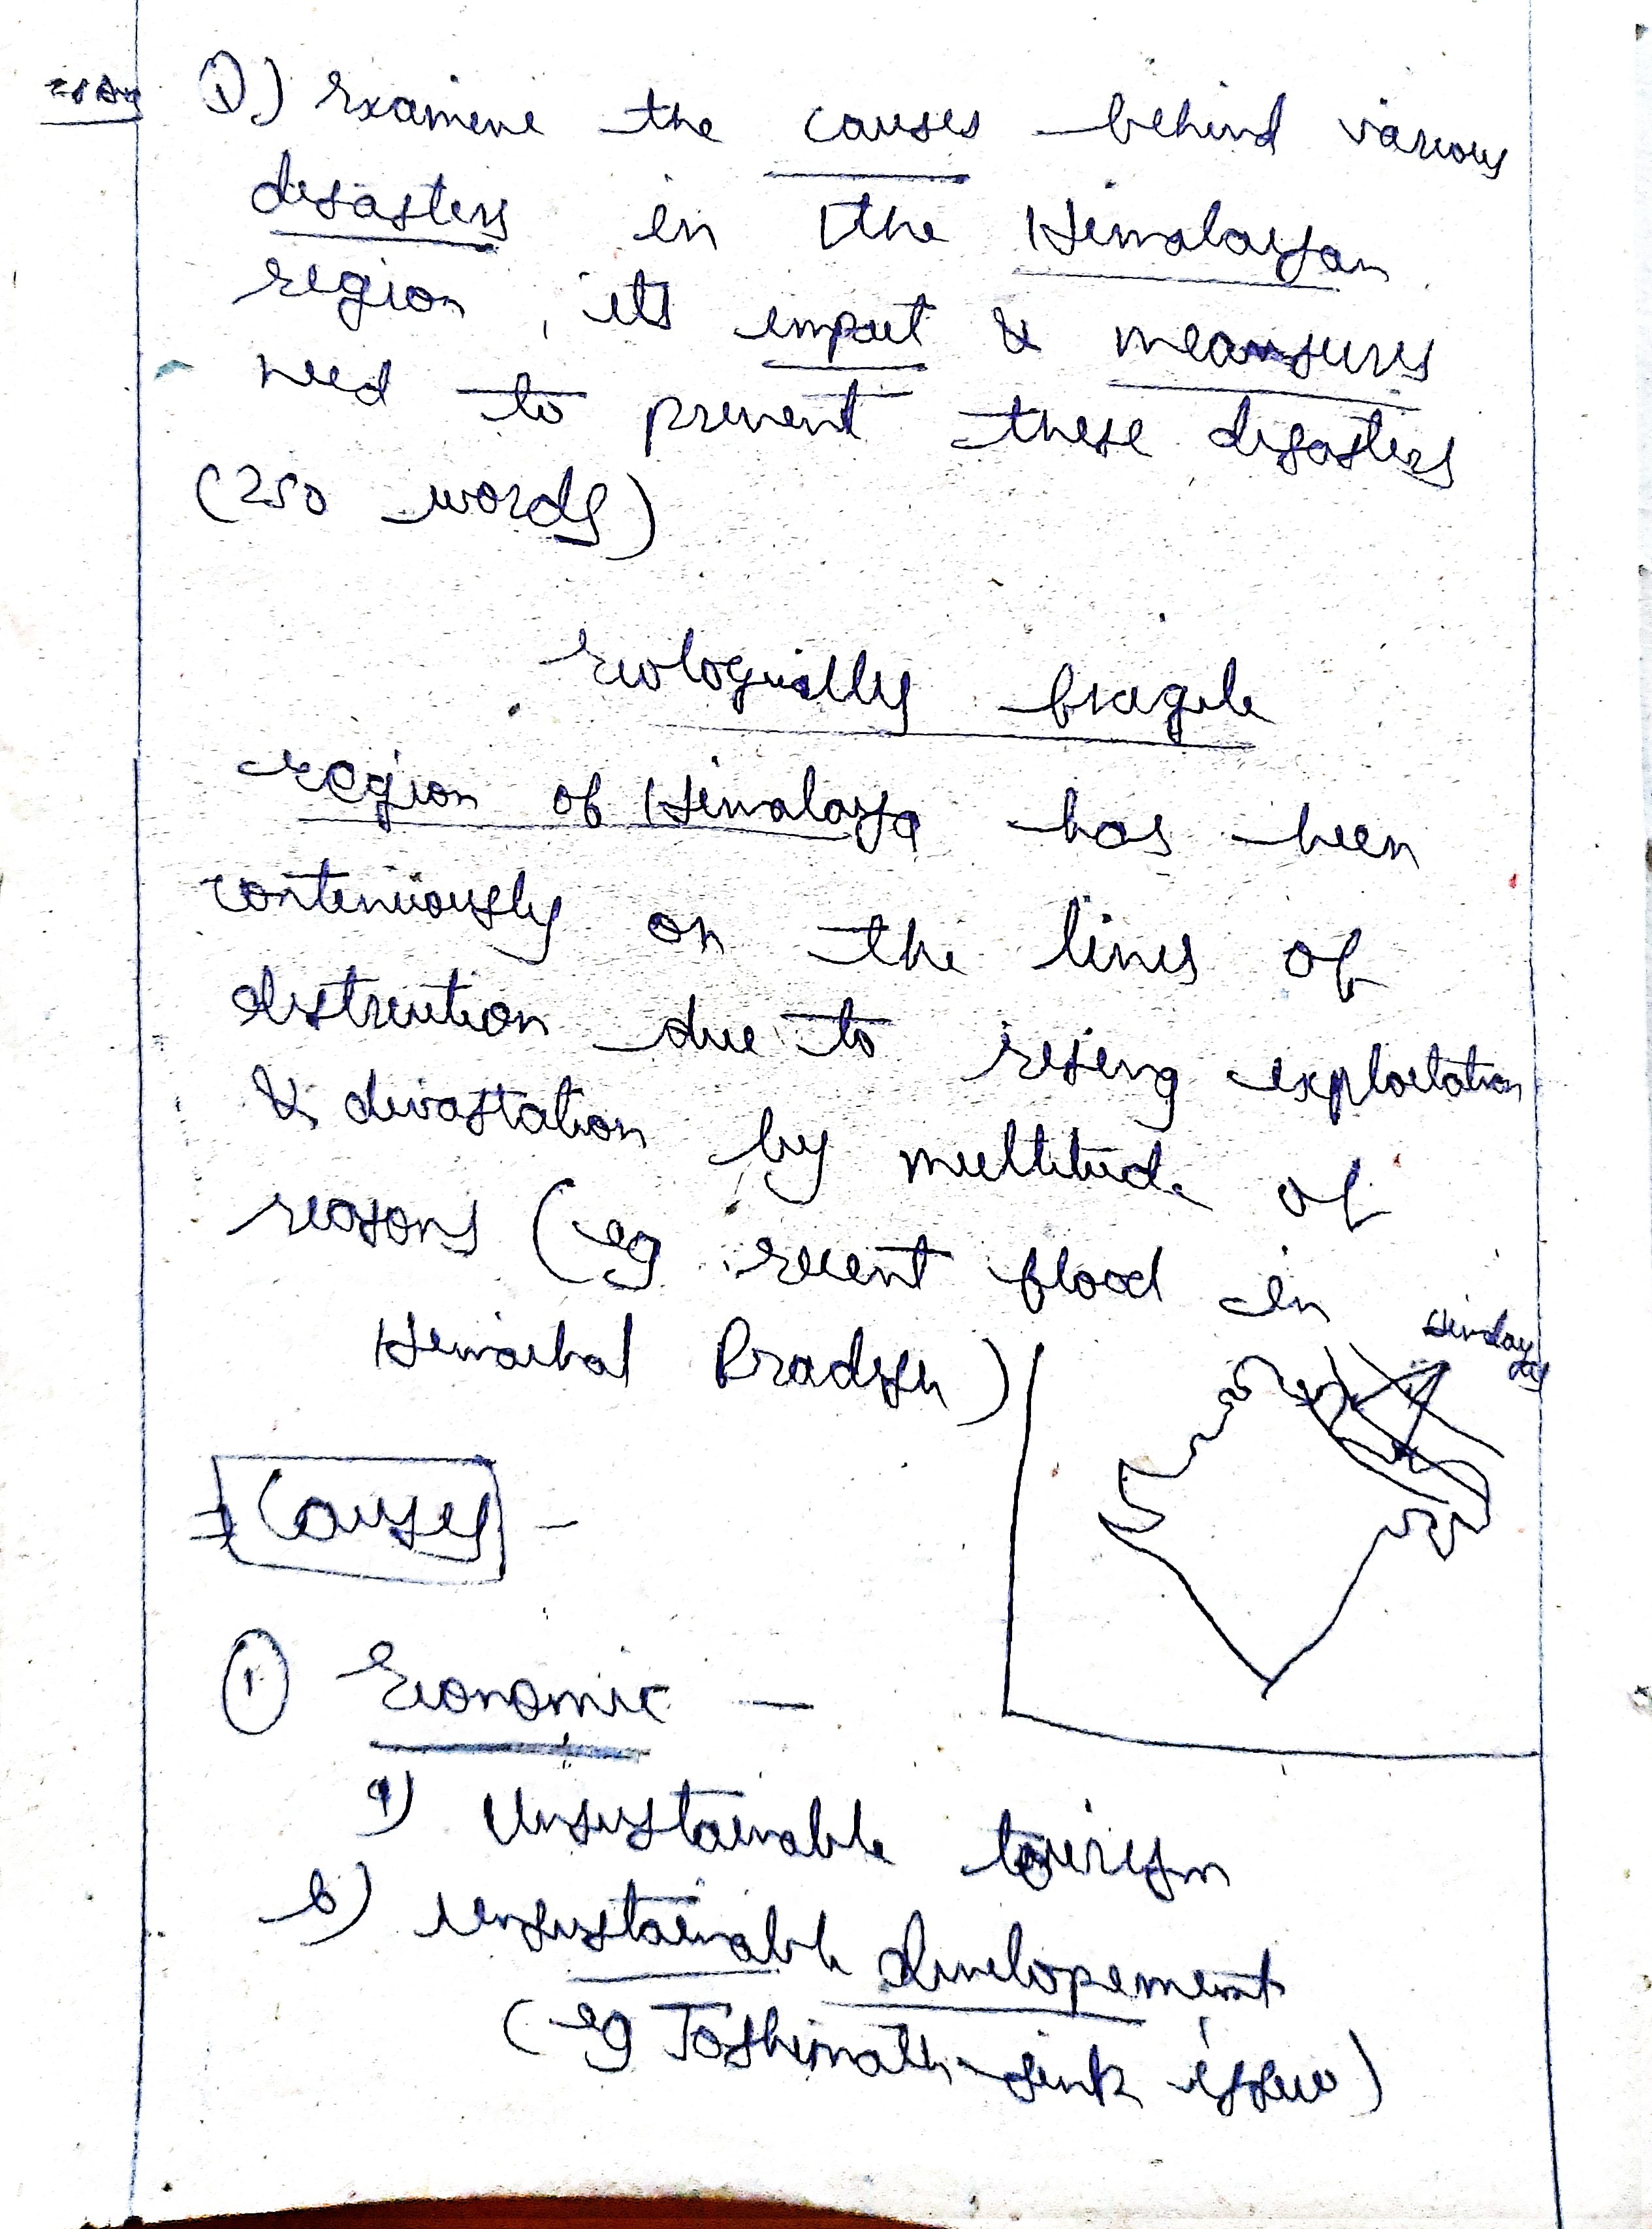 Essay
1.) Examine the causes behind various
disasters in the Himalayan
region, its impact & measures
need to prevent these disasters
(250 words)
Ecologically fragile
region of Himalaya has been
continuously on the lines of
distruction due to rising exploitation
& devastation by multitude of
reasons (eg recent flood in
Himachal Pradesh)
Causes -
1 Economic -
a) Unsustainable tourism
b) unsustainable developement
(eg Joshimath sink issue)